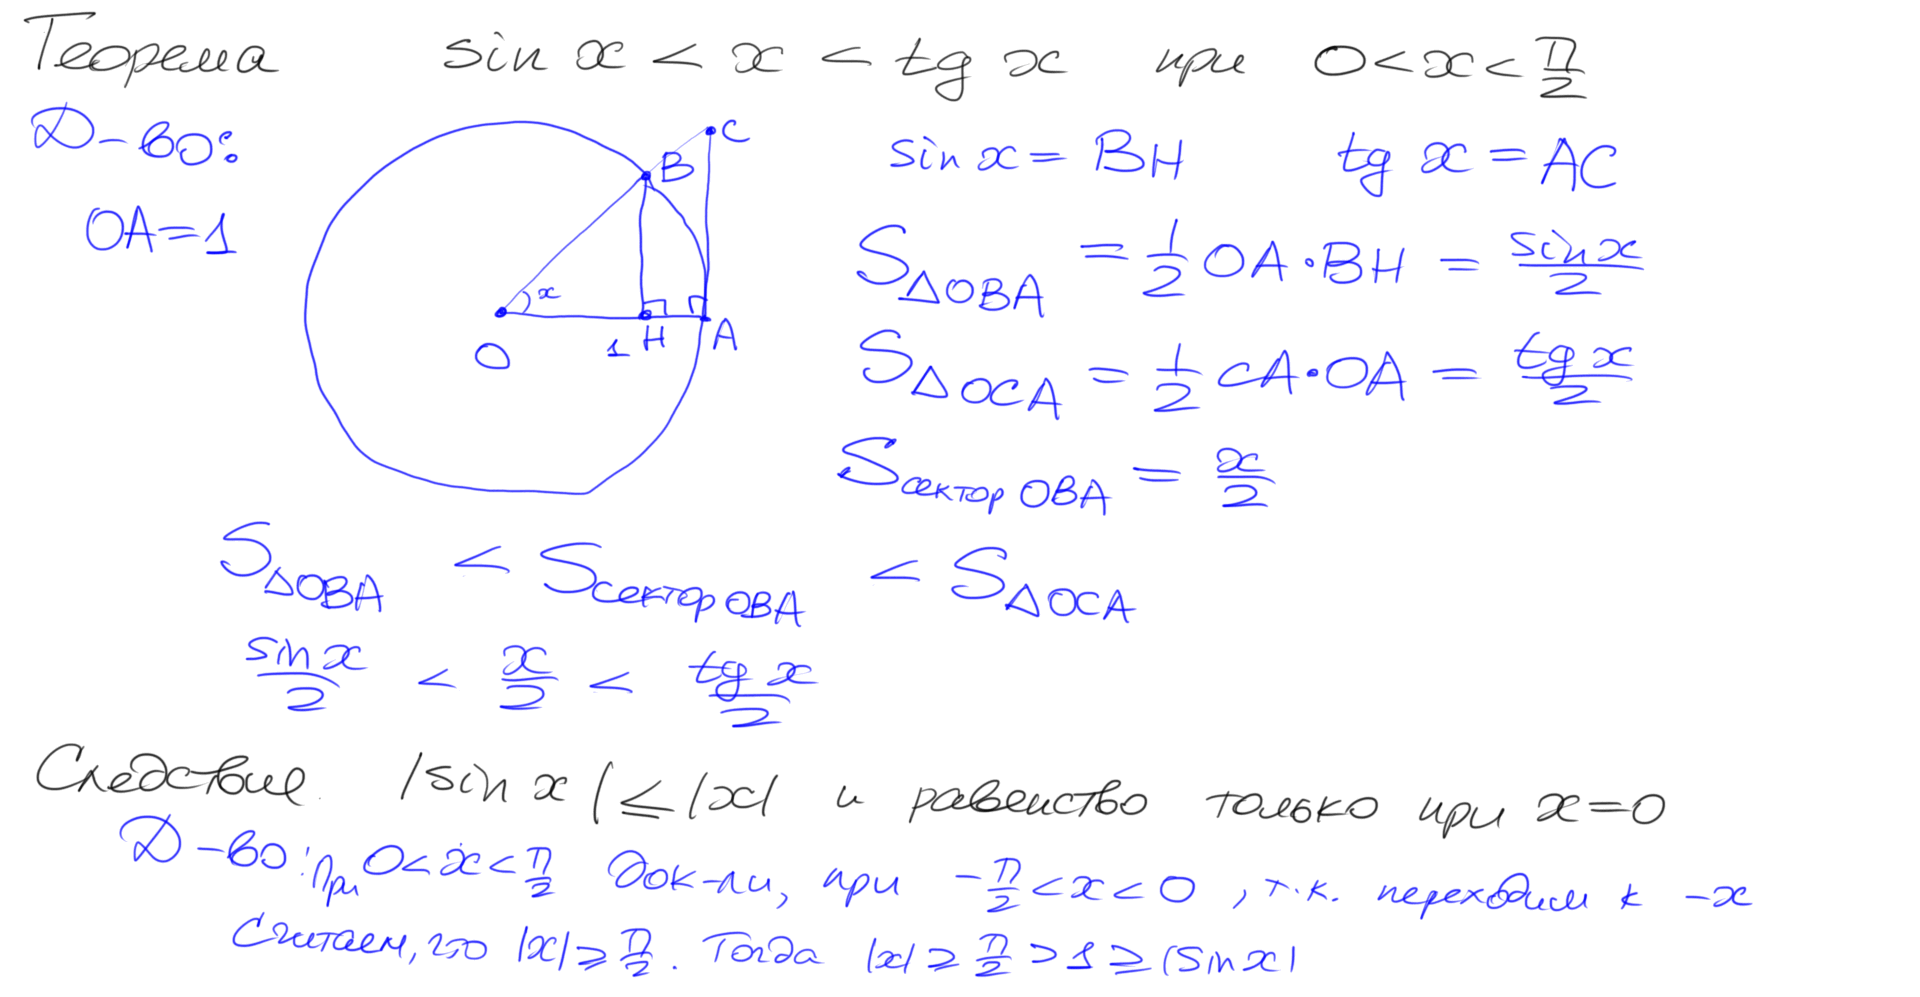 Теорема sin x < x < tg x при 0 < x < π/2
Д-во:
OA = 1
C
B
x
O
1
H
A
sin x = BH tg x = AC
S△OBA = 1/2 OA·BH = sin x/2
S△OCA = 1/2 CA·OA = tg x/2
Sсектор OBA = x/2
S△OBA < Sсектор OBA < S△OCA
sin x/2 < x/2 < tg x/2
Следствие. |sin x| ≤ |x| и равенство только при x = 0
Д-во: При 0 < x < π/2 док-ли, при -π/2 < x < 0, т.к. переходим к -x
Считаем, что |x| ≥ π/2. Тогда |x| ≥ π/2 > 1 ≥ |sin x|